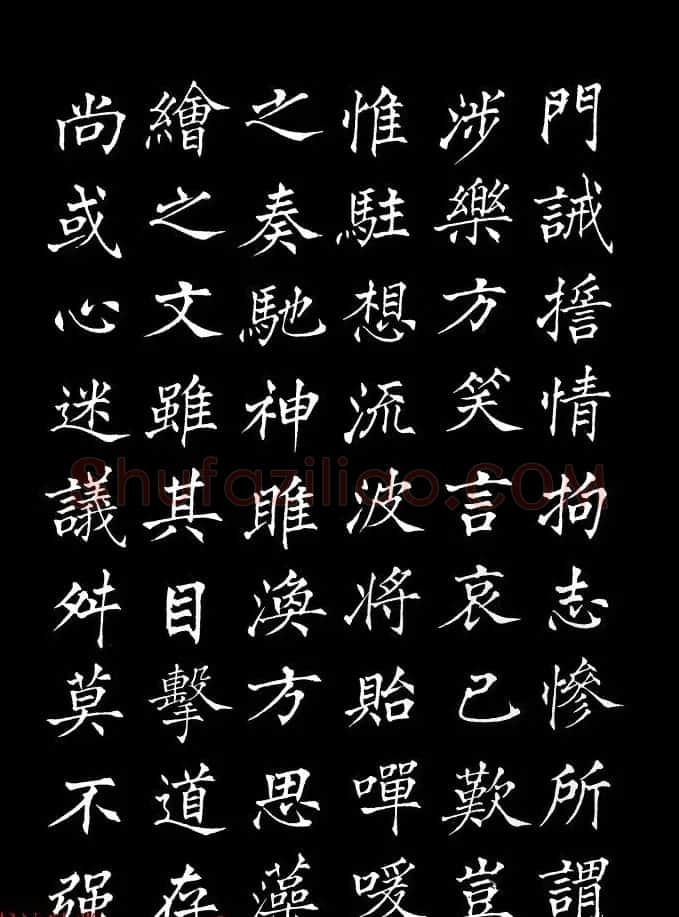 門誡情拘志慘所謂
涉樂方笑言哀已歎豈
惟駐想流波将貽嘽喛
之奏馳神睢渙方思藻
繪之文雖其目擊道存
尚或心迷議舛莫不强
Shufaziliao.COM